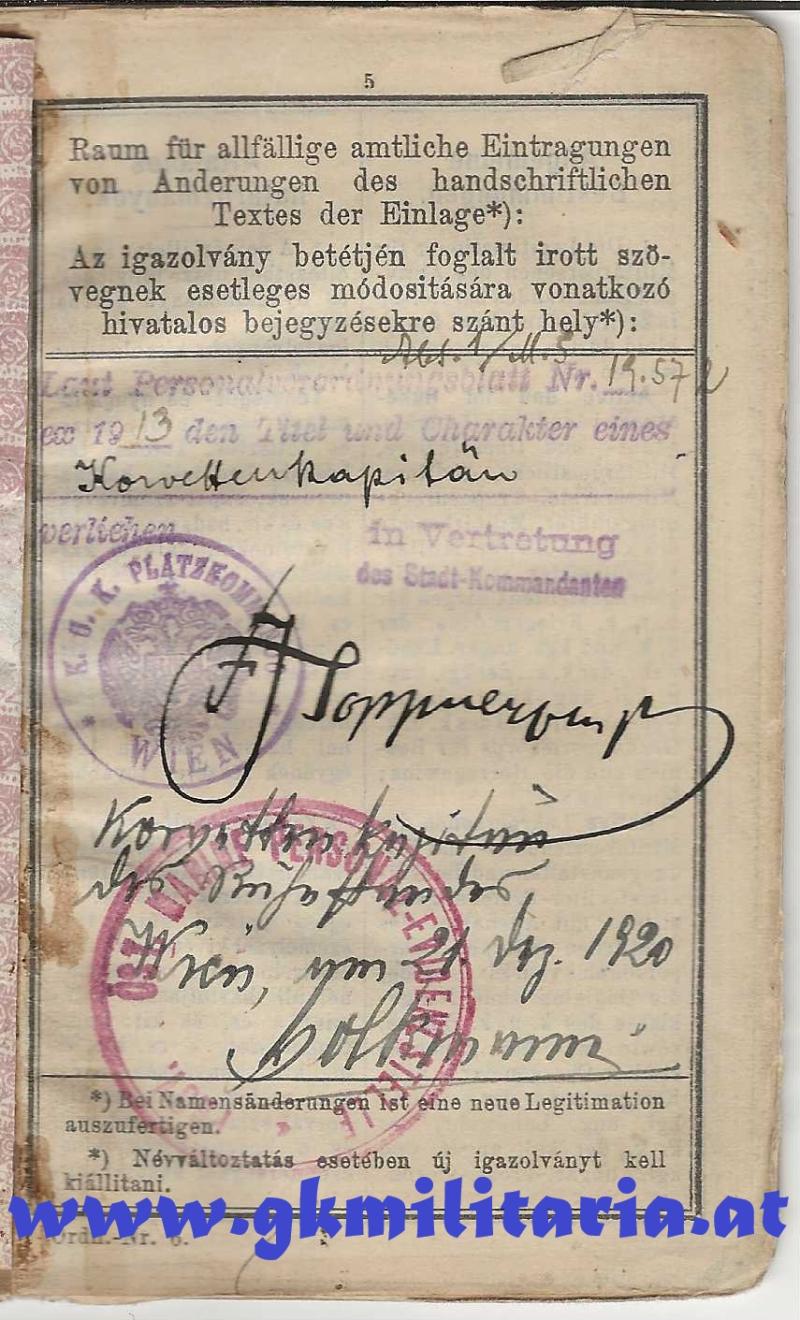 5
Raum für allfällige amtliche Eintragungen
von Änderungen des handschriftlichen
Textes der Einlage*):
Az igazolvány betétjén foglalt irott szö-
vegnek esetleges módositására vonatkozó
hivatalos bejegyzésekre szánt hely*):
Abt. 1/M.S.
Laut Personalverordnungsblatt Nr. 19.572
ex 1913 den Titel und Charakter eines
Korvettenkapitän
verliehen
in Vertretung
des Stadt-Kommandanten
* K. U. K. PLATZKOMM
WIEN
Korvettenkapitän
des Ruhestandes
Wien, am 21. Dez. 1920
MARINE-PERSONAL-EVIDENZSTELLE
*) Bei Namensänderungen ist eine neue Legitimation
auszufertigen.
*) Névváltoztatás esetében új igazolványt kell
kiállitani.
www.gkmilitaria.at
Ordn.-Nr. 6.